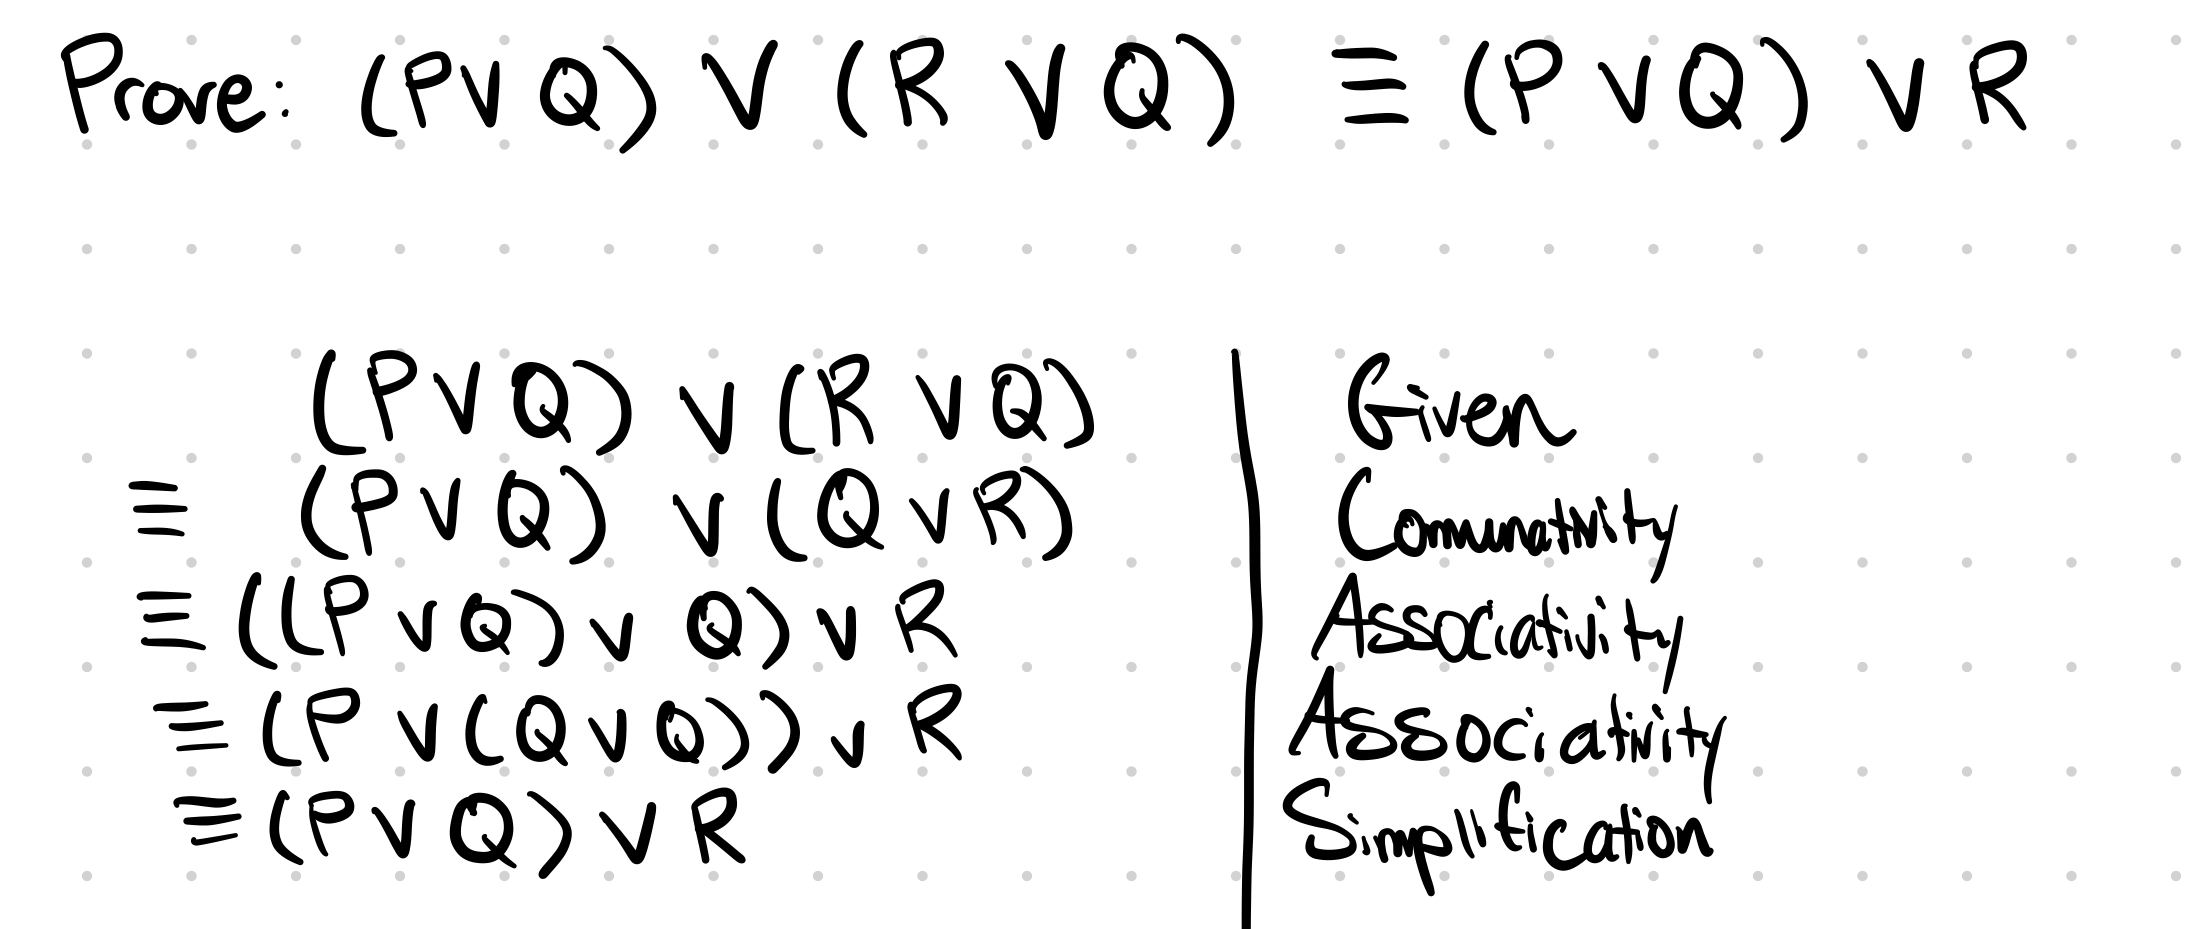 Prove: (P∨Q) ∨ (R ∨ Q) ≡ (P ∨ Q) ∨ R
(P∨Q) ∨ (R ∨ Q) Given
≡ (P∨Q) ∨ (Q ∨ R)
≡ ((P ∨ Q) ∨ Q) ∨ R Associativity
≡ (P ∨ (Q ∨ Q)) ∨ R Associativity
≡ (P ∨ Q) ∨ R Simplification